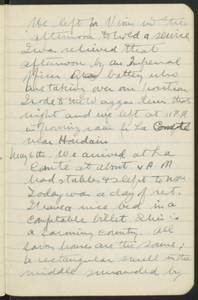 We left for Vimy in the
afternoon to hold a service
I was relieved that
afternoon by an Imperial
battery who
are taking over our position
that
night and we left at
in pouring rain for La Comté
near Houdain
We arrived at La
Comté at about A.M
had stables & slept to noon
Today was a day of rest.
I have a nice bed in a
comfortable billet this is
a farming country. All
farm houses are the same,
a rectangular small
middle surrounded by